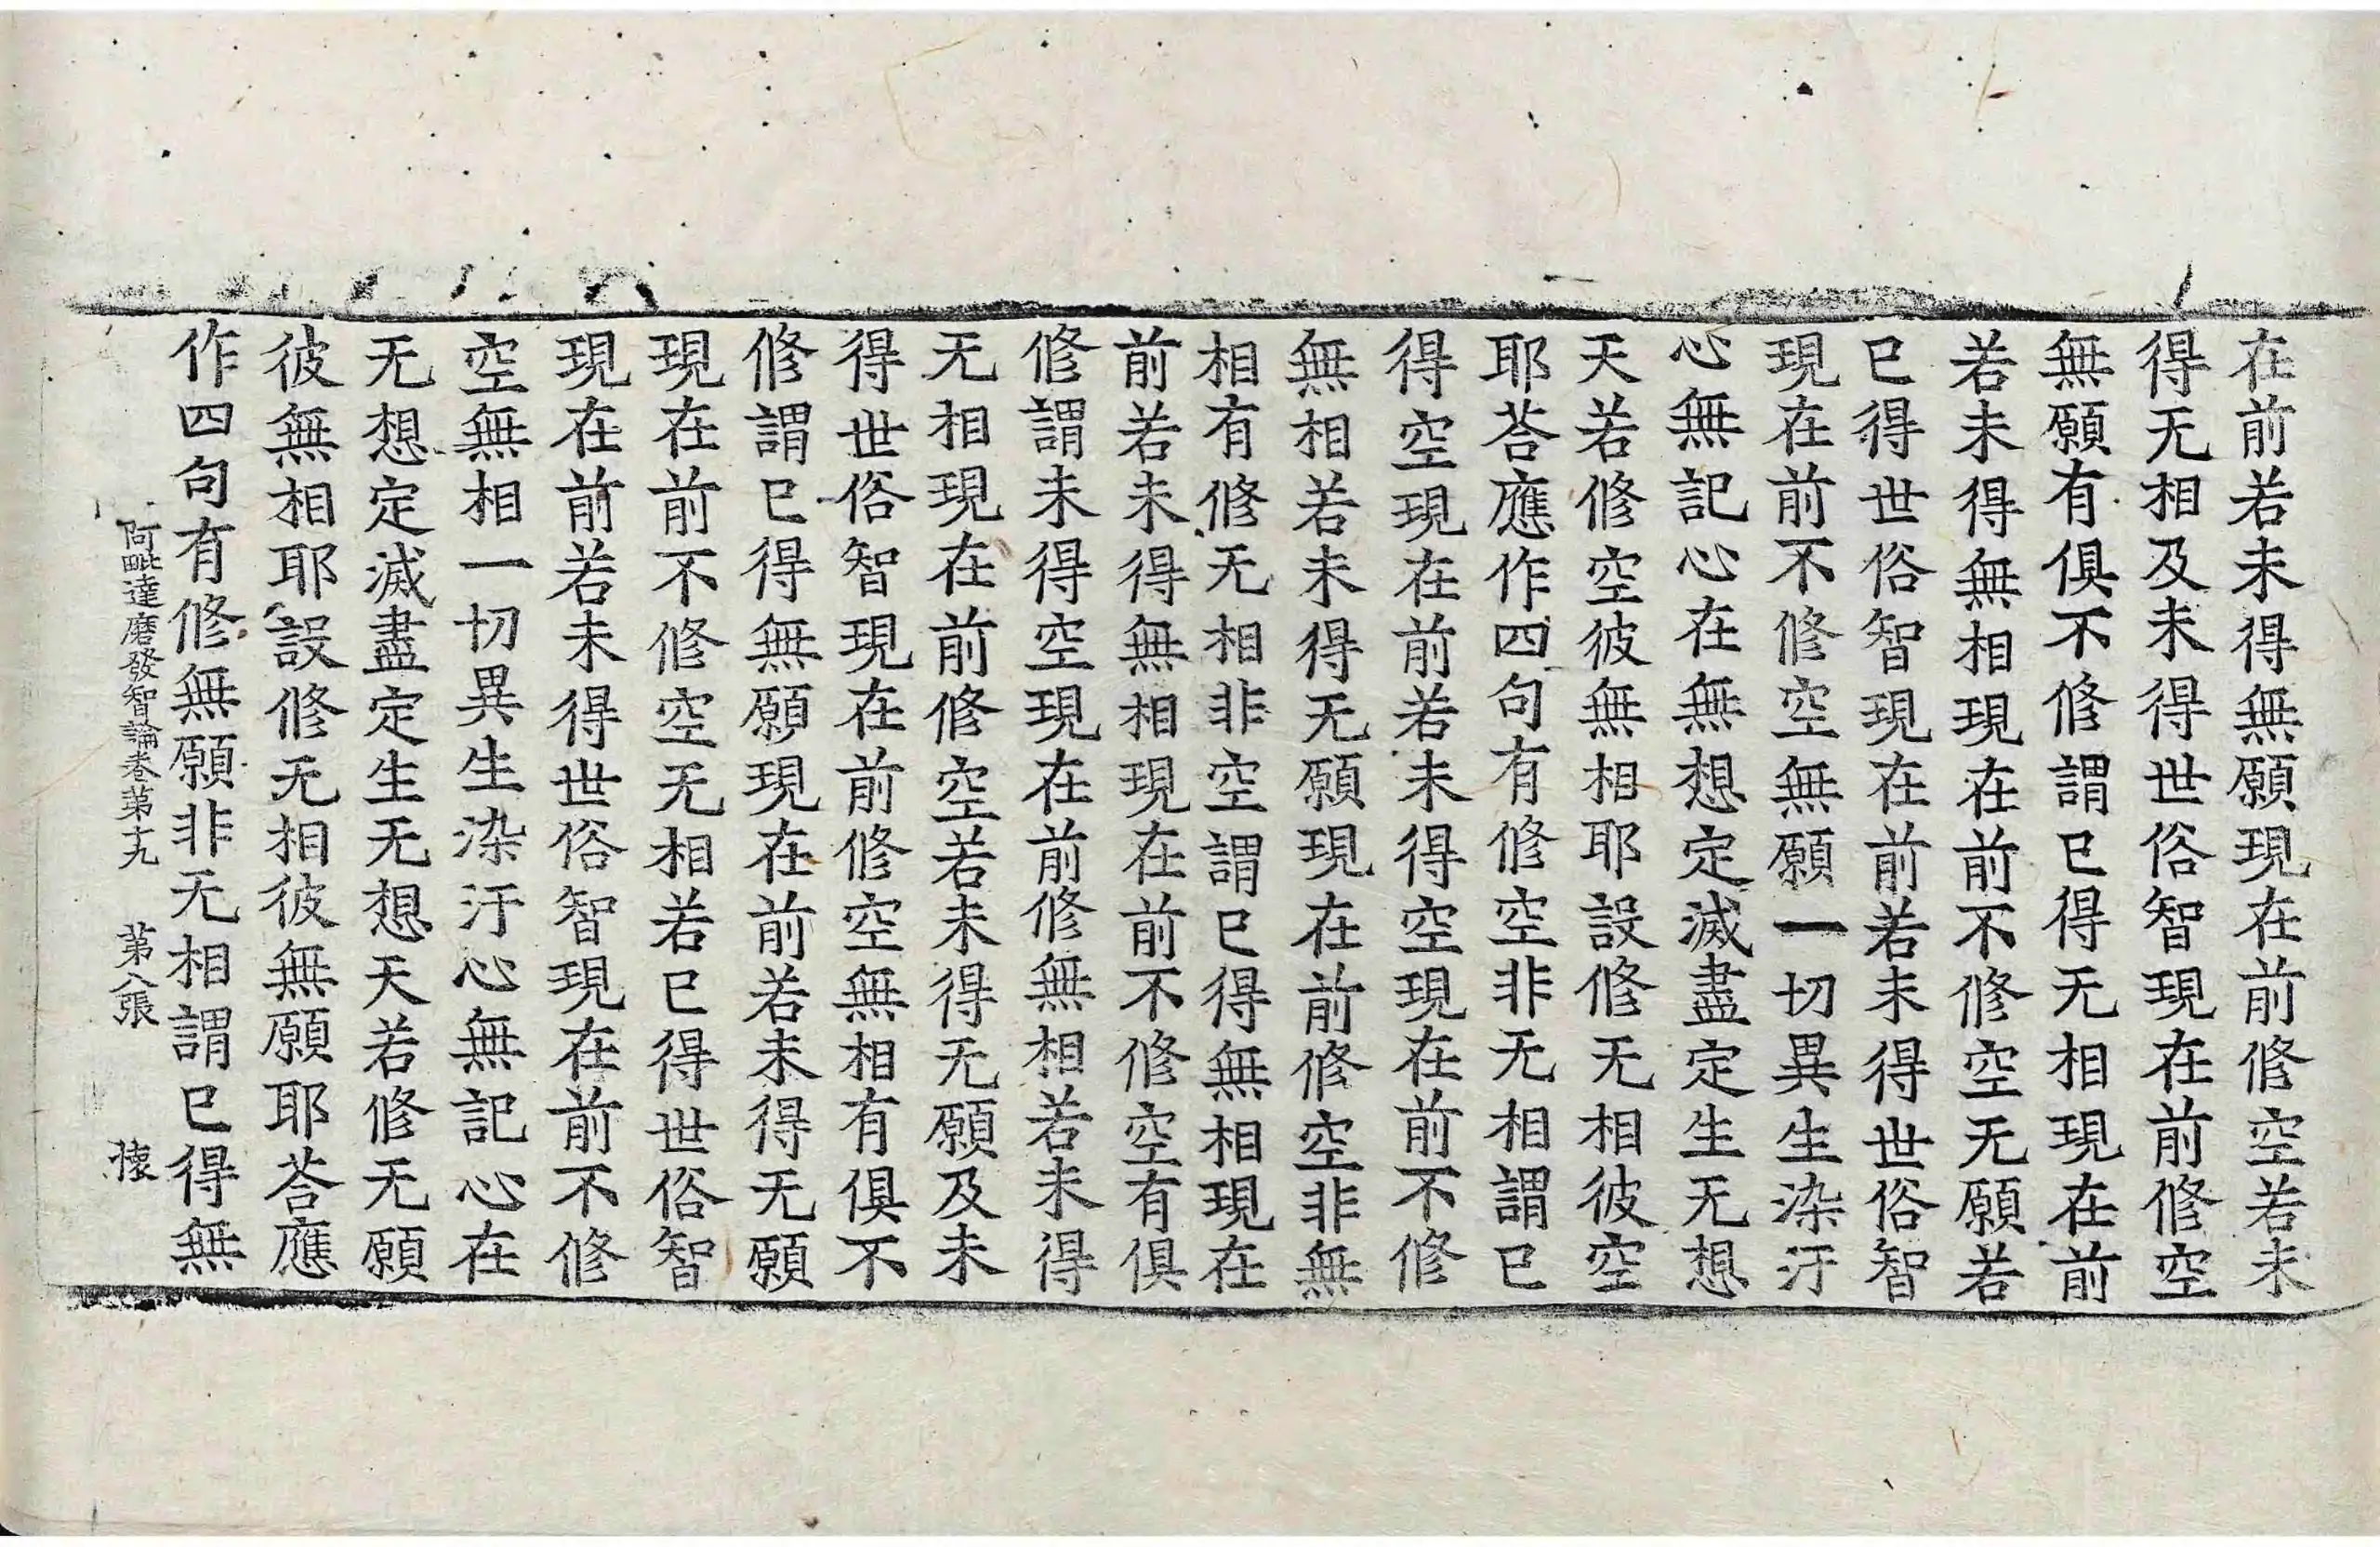 在前若未得無願現在前修空若未
得无相及未得世俗智現在前修空
無願有俱不修謂已得无相現在前
若未得無相現在前不修空无願若
已得世俗智現在前若未得世俗智
現在前不修空無願一切異生染汙
心無記心在無想定滅盡定生无想
天若修空彼無相耶設修无相彼空
耶荅應作四句有修空非无相謂已
得空現在前若未得空現在前不修
無相若未得无願現在前修空非無
相有修无相非空謂已得無相現在
前若未得無相現在前不修空有俱
修謂未得空現在前修無相若未得
无相現在前修空若未得无願及未
得世俗智現在前修空無相有俱不
修謂已得無願現在前若未得无願
現在前不修空无相若已得世俗智
現在前若未得世俗智現在前不修
空無相一切異生染汙心無記心在
无想定滅盡定生无想天若修无願
彼無相耶設修无相彼無願耶荅應
作四句有修無願非无相謂已得無
阿毗達磨發智論卷第十九 第八張